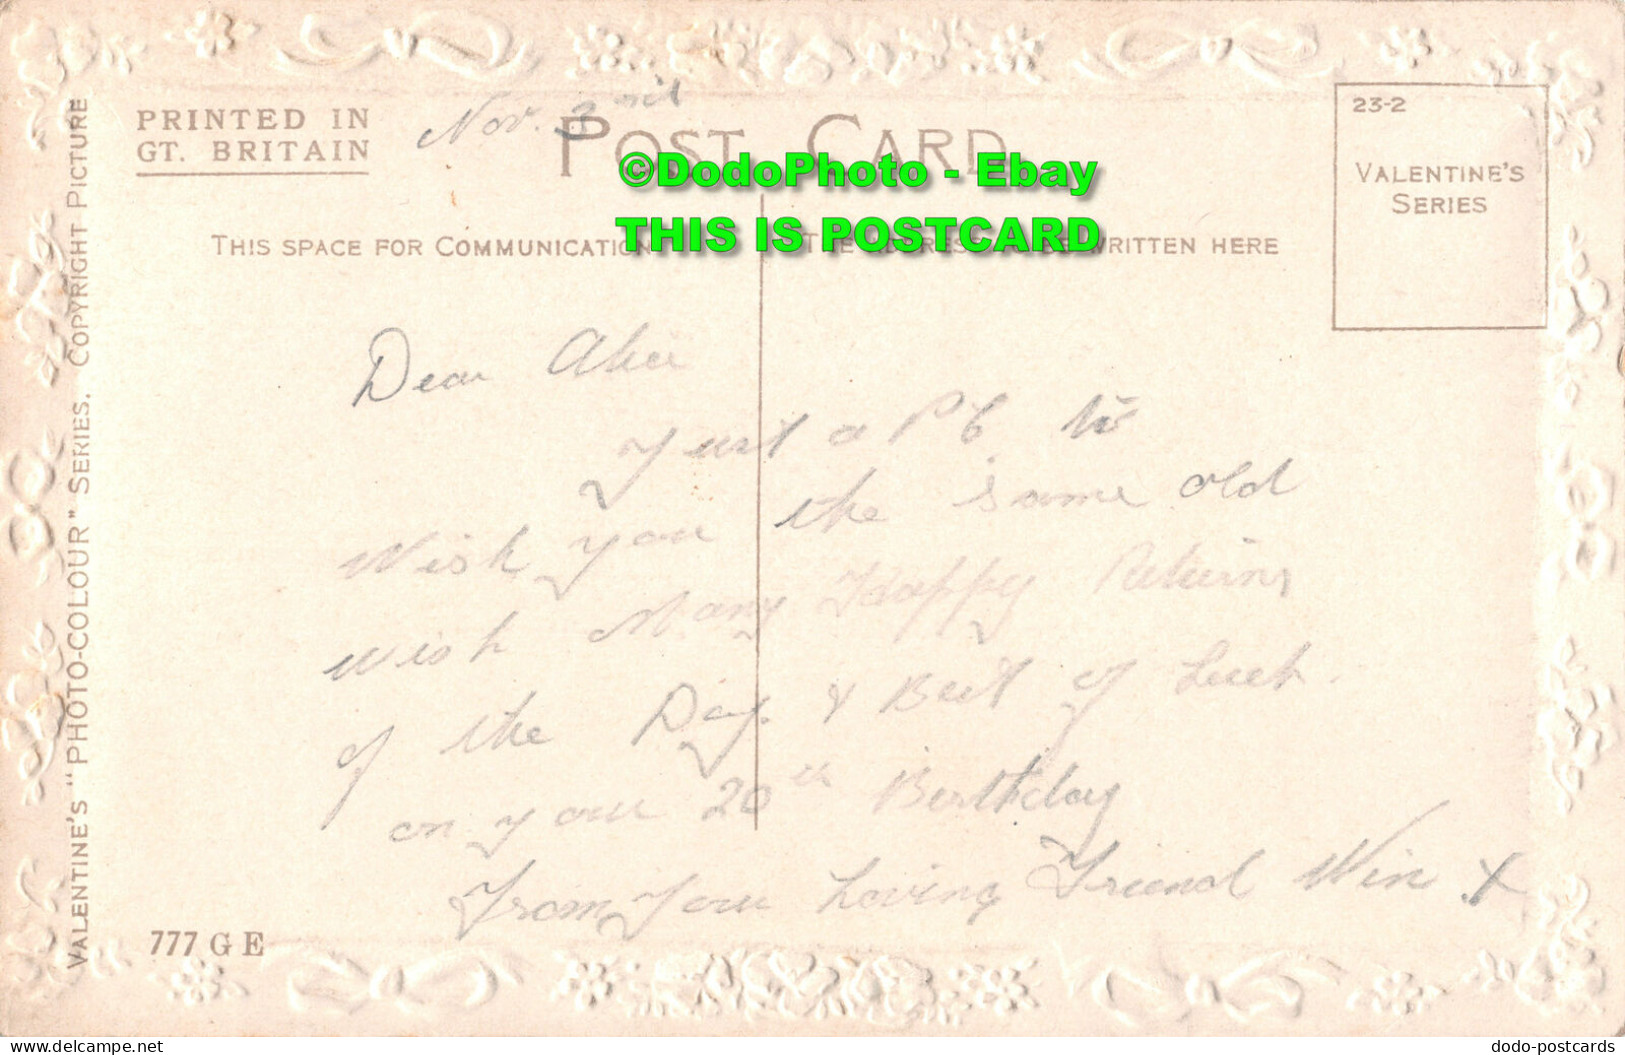 PRINTED IN
GT. BRITAIN
Nov. 3rd
POST CARD
©DodoPhoto - Ebay
THIS IS POSTCARD
23-2
VALENTINE'S
SERIES
THIS SPACE FOR COMMUNICATION
WRITTEN HERE
VALENTINE'S "PHOTO-COLOUR" SERIES. COPYRIGHT PICTURE
Dear Alice
Just a P C to
Wish you the same old
wish Many Happy Returns
of the Day & Best of Luck.
on your 20th Birthday
From Your Loving Friend Win X
777 G E
https://www.delcampe.net
dodo-postcards